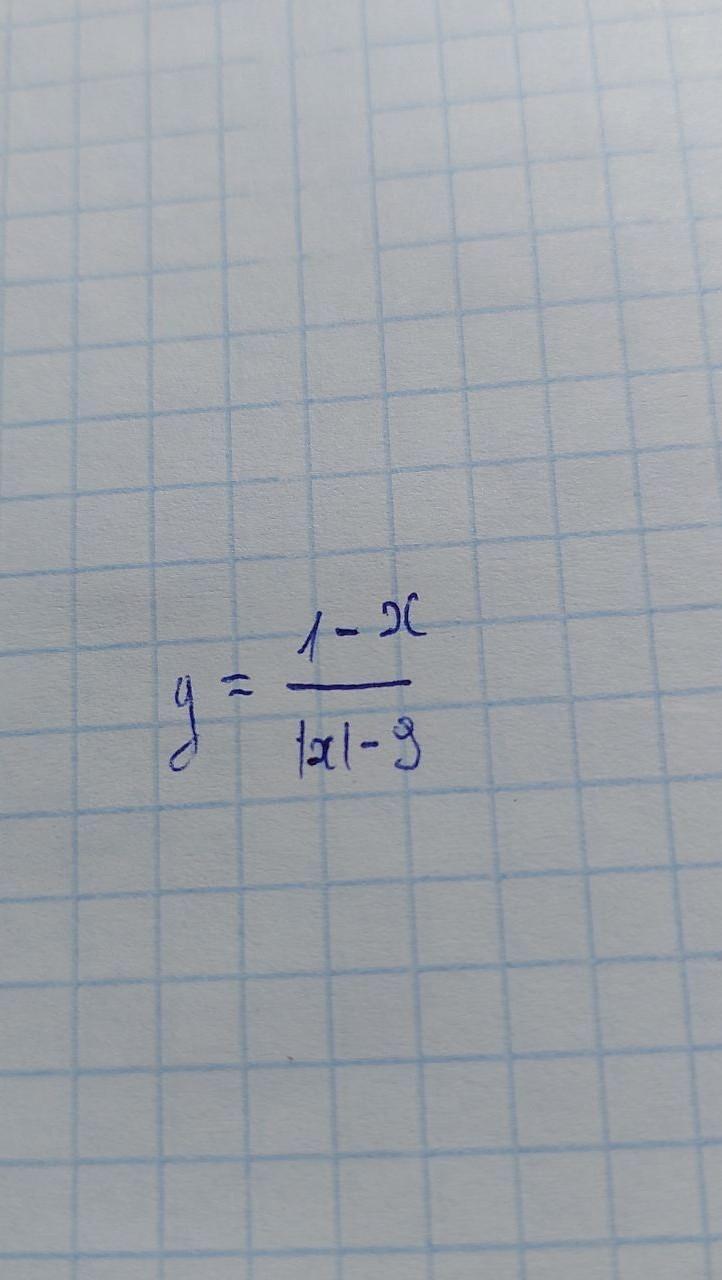 y = (1 - x) / (|x| - 9)